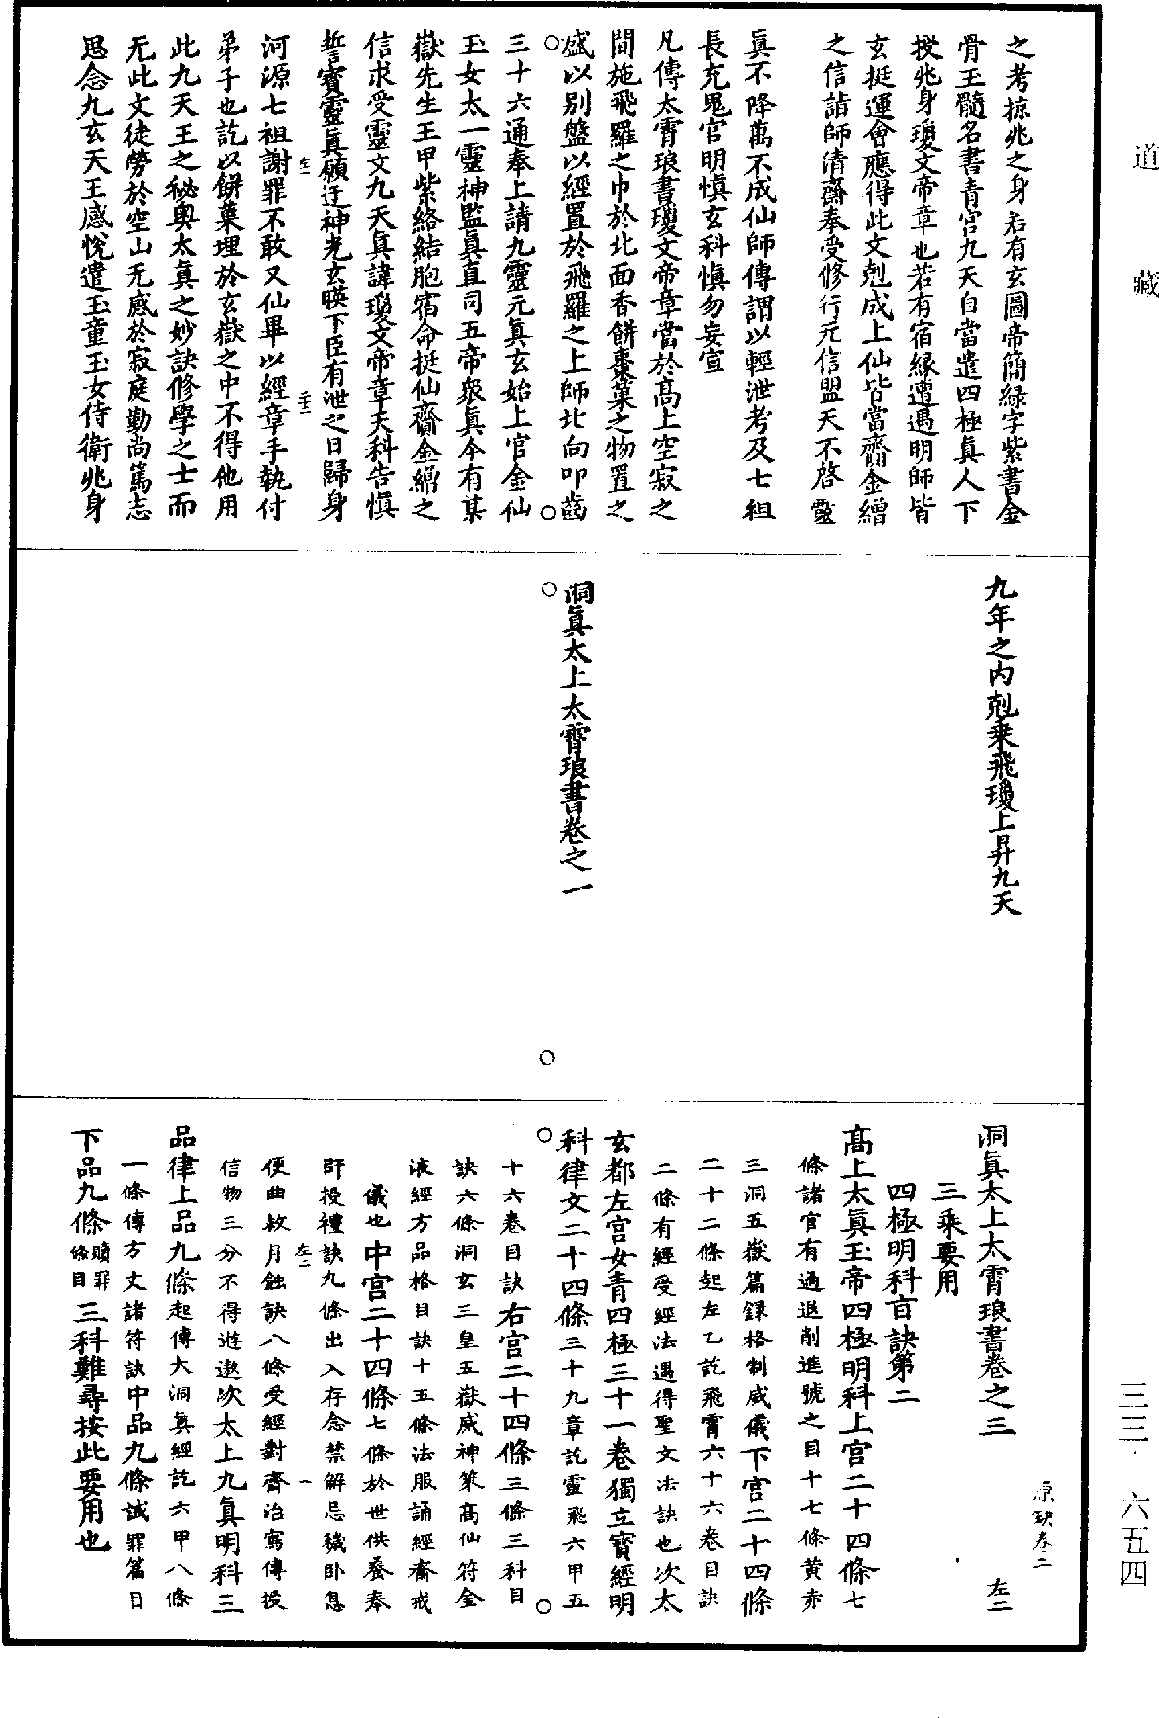 道藏
之考掠兆之身若有玄圖帝簡綠字紫書金
骨玉髓名書青宮九天自當遣四極真人下
授兆身瓊文帝章也若有宿緣遭遇明師皆
玄挺運會應得此文剋成上仙皆當齎金繒
之信詣師清齋奉受修行无信盟天不啓靈
真不降萬不成仙師傳謂以輕泄考及七祖
長充鬼官明慎玄科慎勿妄宣
凡傳太霄琅書瓊文帝章當於高上空寂之
間施飛羅之巾於北面香餅棗菓之物置之
盛以別盤以經置於飛羅之上師北向叩齒
三十六通奉上請九靈元真玄始上官金仙
玉女太一靈神監真直司五帝衆真今有某
嶽先生王甲紫絡結胞宿命挺仙齎金繒之
信求受靈文九天真諱瓊文帝章天科告慎
誓寶靈真願迂神光玄暎下臣有泄之日歸身
左一 二十二
河源七祖謝罪不敢又仙畢以經章手執付
弟子也訖以餅菓埋於玄嶽之中不得他用
此九天王之秘奧太真之妙訣修學之士而
无此文徒勞於空山无感於寂庭勤尚篤志
思念九玄天王感悅遣玉童玉女侍衛兆身
九年之內剋乘飛瓊上昇九天
洞真太上太霄琅書卷之一
原缺卷二 左二
洞真太上太霄琅書卷之三
三乘要用
四極明科百訣第二
高上太真玉帝四極明科上宮二十四條七
條諸官有過退削進號之目十七條黃赤
三洞五嶽篇錄格制威儀下宮二十四條
二十二條起左乙訖飛霄六十六卷目訣
二條有經受經法遇得聖文法訣也次太
玄都左宮女青四極三十一卷獨立寶經明
科律文二十四條三十九章訖靈飛六甲五
十六卷目訣右宮二十四條三條三科目
訣六條洞玄三皇五嶽威神策高仙符金
液經方品格目訣十五條法服誦經齋戒
儀也中宮二十四條七條於世供養奉
師授禮訣九條出入存念禁解忌穢卧息
左二 一
便曲敕月蝕訣八條受經對齋治寫傳授
信物三分不得遊遨次太上九真明科三
品律上品九條起傳大洞真經訖六甲八條
一條傳方丈諸符訣中品九條誡罪篇目
下品九條贖罪條目三科難尋按此要用也
三三·六五四